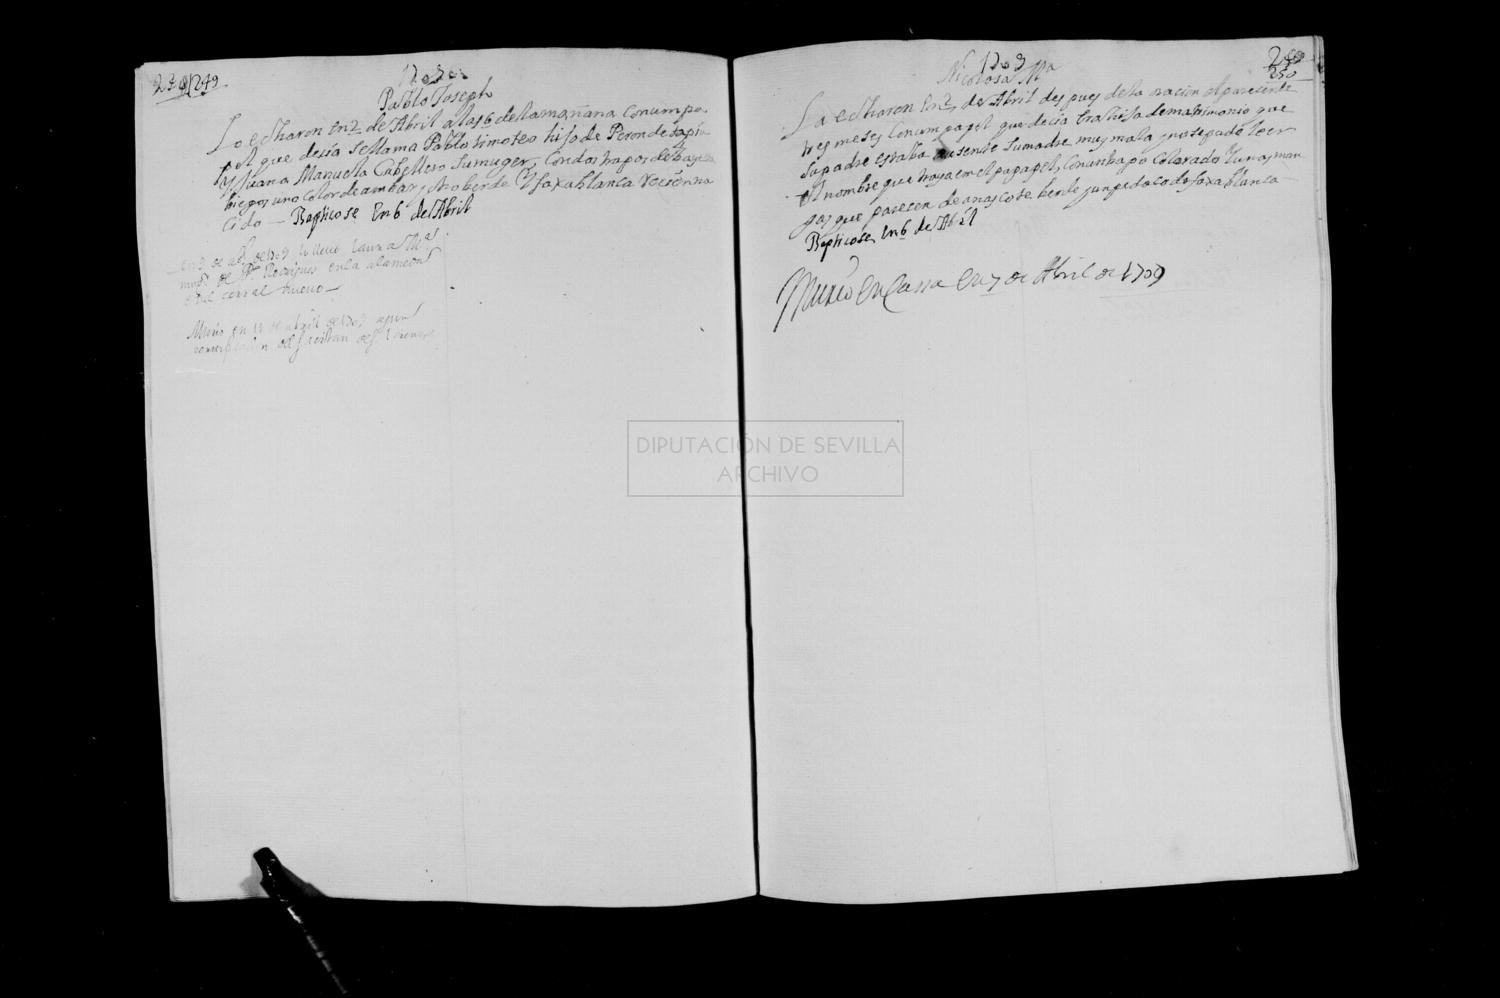 249
1709
Pablo Joseph
Lo echaron en 2 de Abril a las 6 de la mañana con un pa-
pel que desia se llama Pablo timoteo hijo de Peron de tapia
Y Juana Manuela Caballero su muger, Con dos trapos de bayeta
biejos uno color de ambar, y otro berde Y faxa blanca recien na
cido — Bapticose En 6 de Abril
en 9 de abl de 1709 lo llevo
mugr de Rodrigues en la alameda
en el corral nuevo —
Murio en 11 de abril de 1709
1709
250
Nicolosa Ma
La echaron En 2, de Abril despues de la oracion al pareser de
tres meses Con un papel que decia era hija de matrimonio que
su padre estaba ausente su madre muy mala, y no se pudo leer
el nombre que traya en el papapel, Con un trapo Colorado Y unas man
gas que paresen de anascote berde y un pedaço de faxa blanca
Bapticose, En 6 de Abril
Murio en Cassa en 7 de Abril de 1709
DIPUTACIÓN DE SEVILLA
ARCHIVO